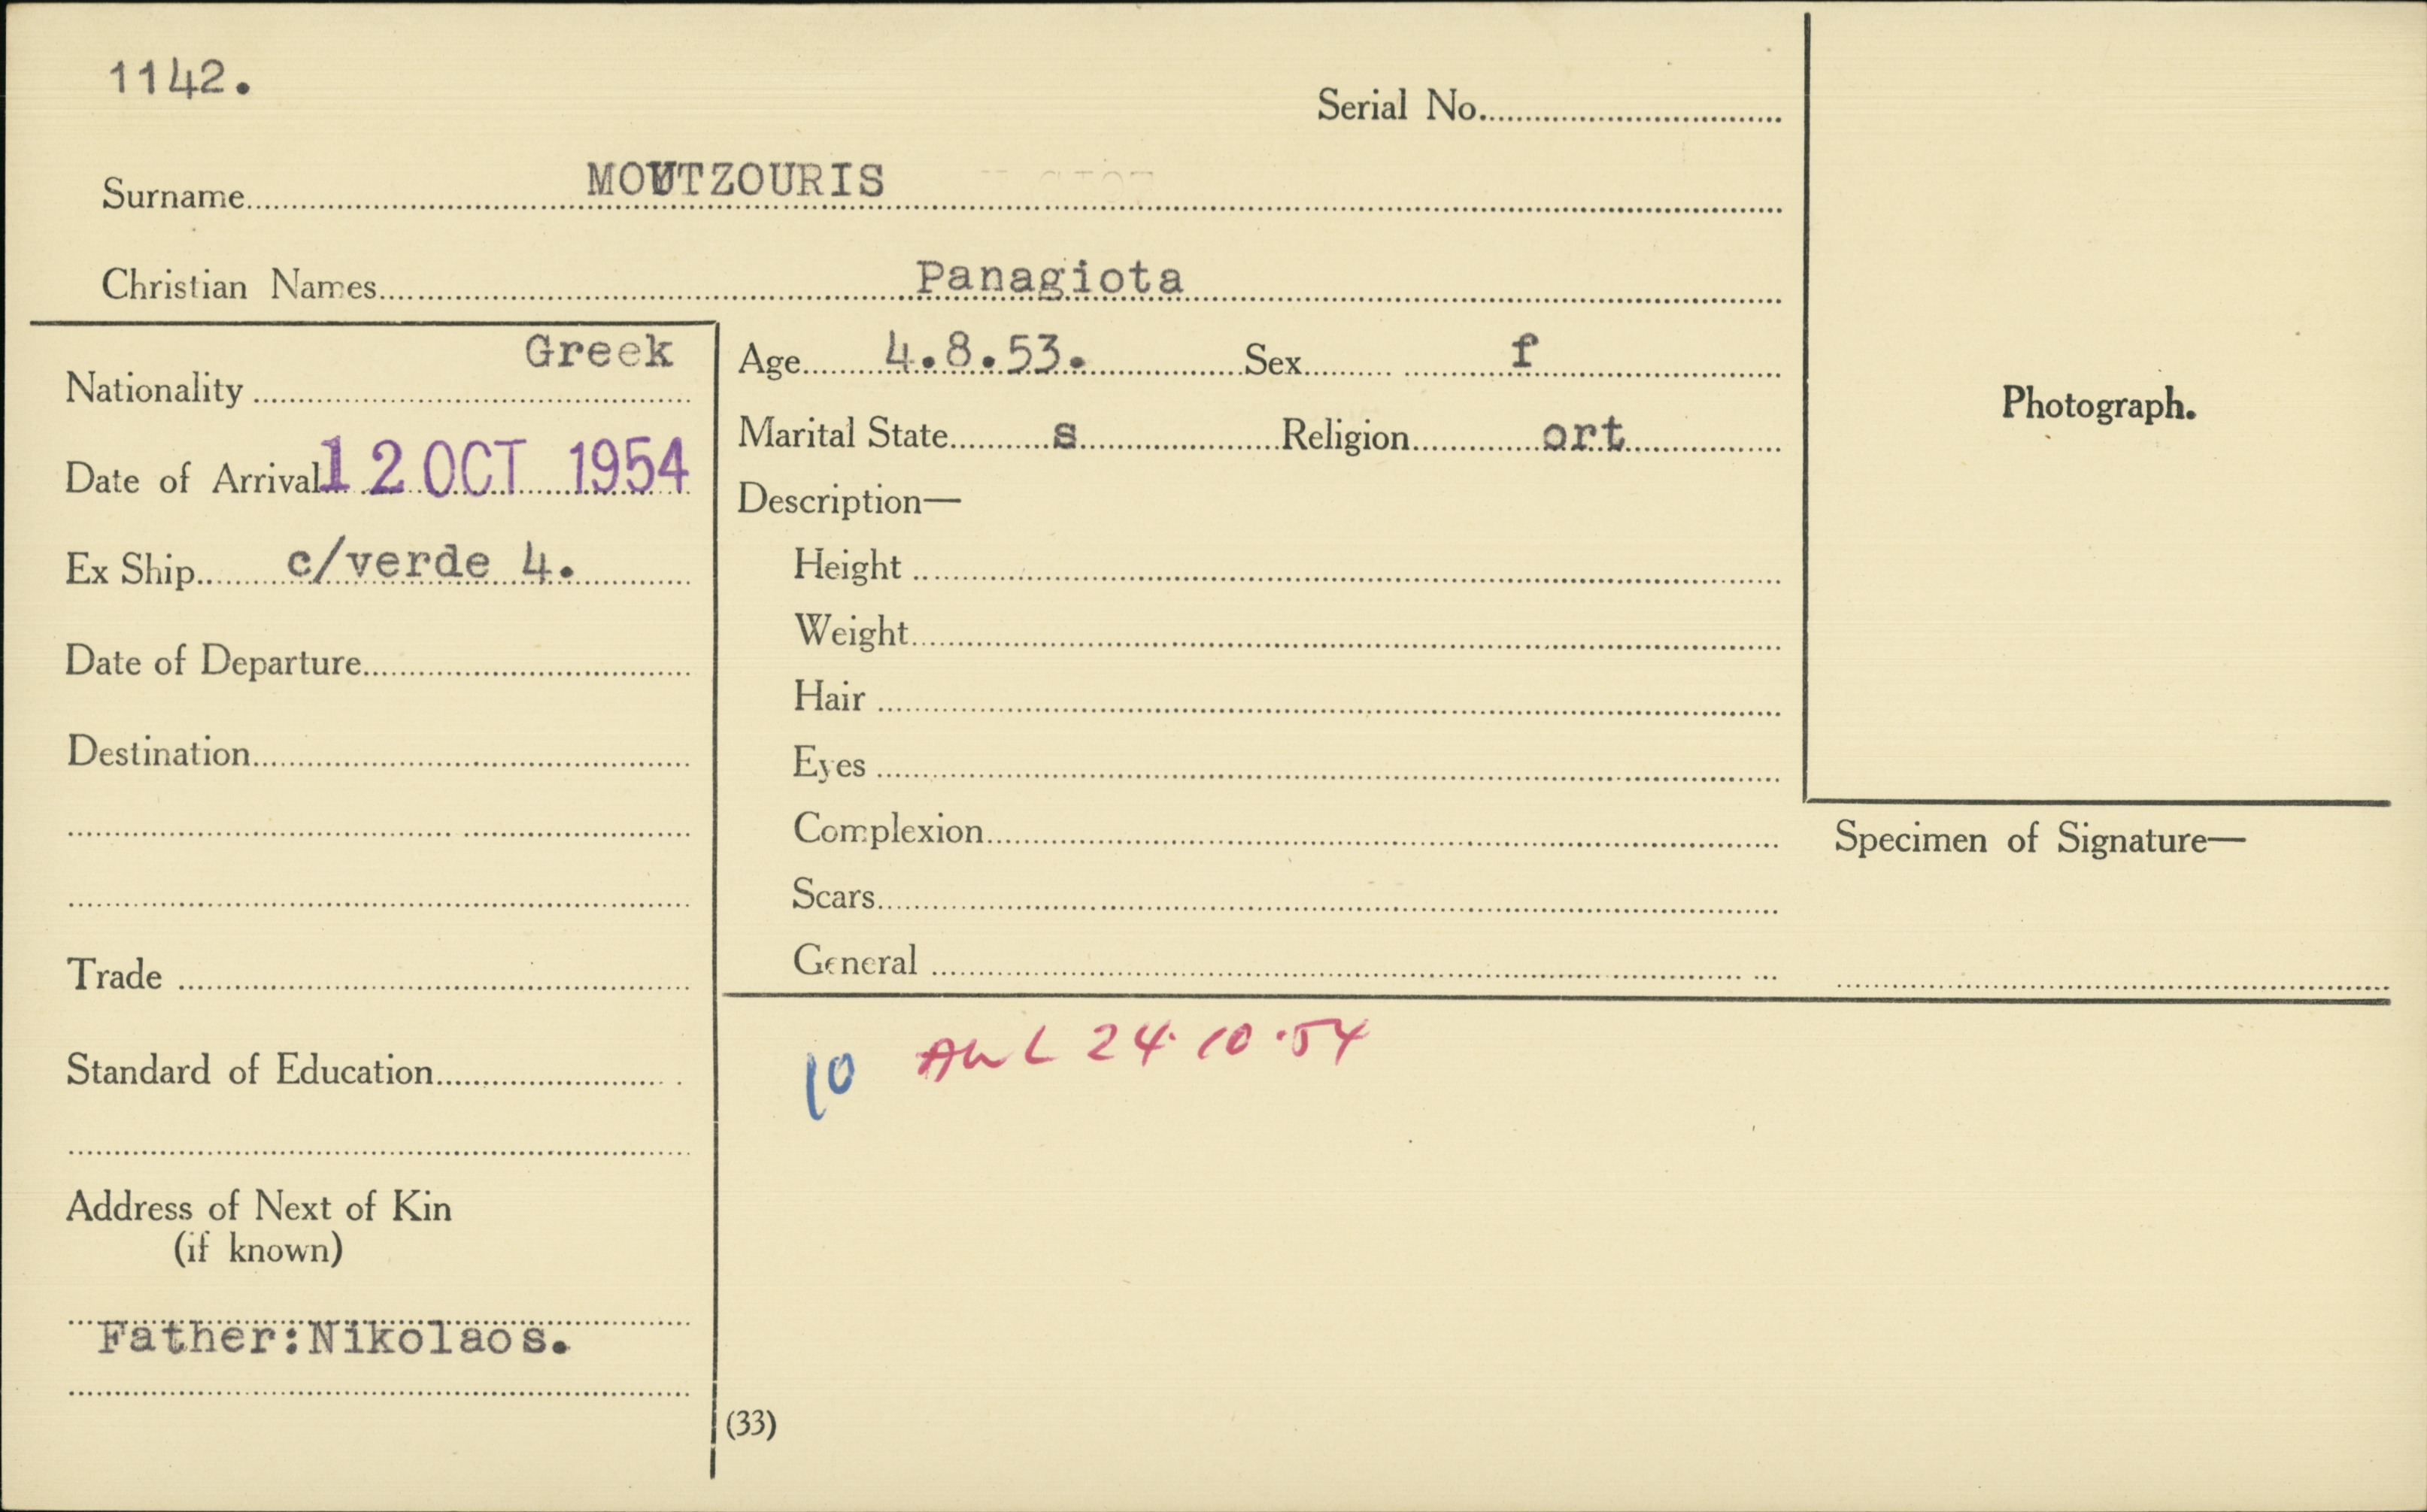 1142.
Serial No.
Surname MOUTZOURIS
Christian Names Panagiota
Nationality Greek
Date of Arrival 12 OCT 1954
Ex Ship c/verde 4.
Date of Departure
Destination
Trade
Standard of Education
Address of Next of Kin
(if known)
Father:Nikolaos.
Age 4.8.53. Sex f
Marital State s Religion ort
Description—
Height
Weight
Hair
Eyes
Complexion
Scars
General
Photograph.
Specimen of Signature—
10 AWL 24.10.54
(33)